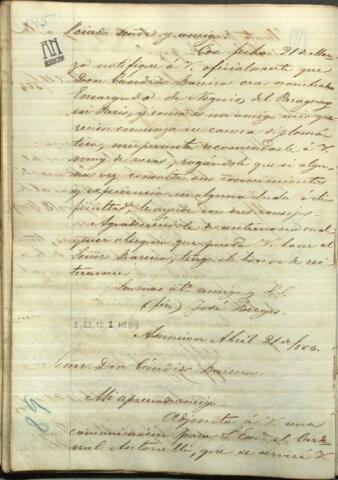 145
AN
ASUNCIÓN
Con fecha 21 de Mar-
zo notifiqué á V. oficialmente que
Don Cándido Bareiro era nombrado
Encargado de Negocios del Paraguay
en Paris, y como es un amigo mio que
recien comienza su carrera diplomá-
tica, me permito recomendarle á V.
muy de veras, rogándole que si algu-
na vez consulta sus conocimientos
y experiencia en alguna duda ó di-
ficultad, le ayude con sus consejos.
Agradeciéndole de antemano cual-
quier obsequio que pueda V. hacer al
Señor Bareiro, tengo el honor de rei-
terarme
Su mas atº amigo y S. S.
(fdo) José Berges
I-22,12,1 Nº 89
Asuncion Abril 21 de 1864.
Señor Don Cándido Bareiro.
Mi apreciado amigo
Adjunto á V. una
comunicacion para S. Emª el Carde-
nal Antonelli, que se servirá V.